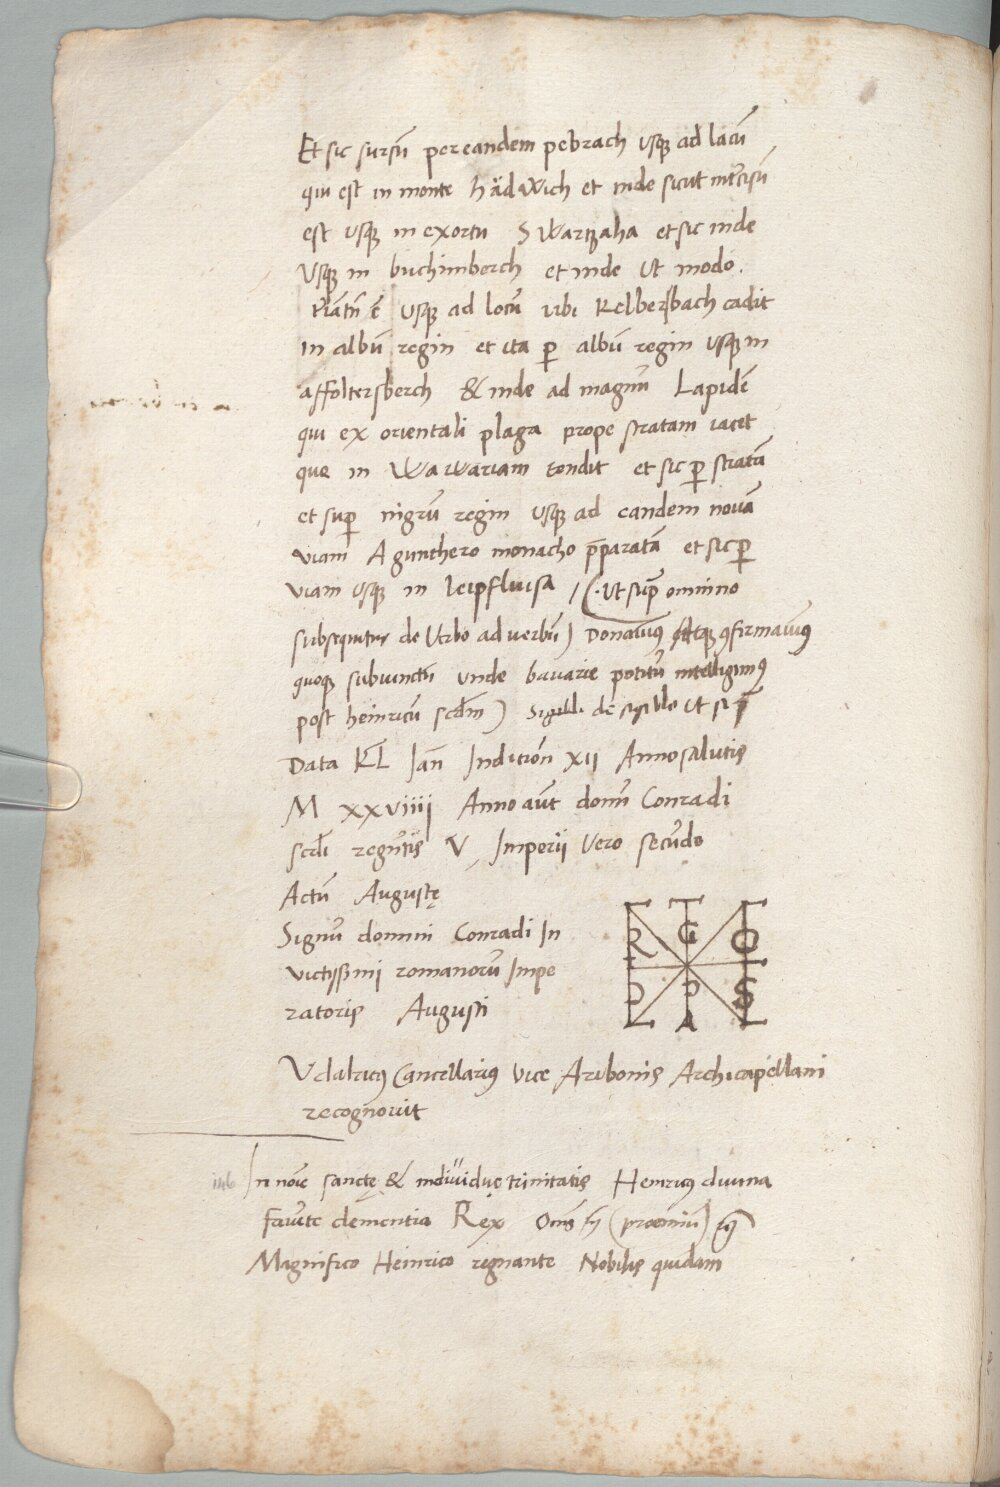 Et sic sursū per eandem pebrach usqꝫ ad lacū
qui est in monte hädwich et inde sicut intᵉcisū
est usqꝫ in exortū Swartzaha et sic inde
Usqꝫ in buchinberch et inde ut modo.
usqꝫ ad locū ubi Kelbersbach cadit
in albū regin et ita ꝑ albū regin usqꝫ in
affoltersberch & inde ad magnū Lapidē
qui ex orientali plaga prope stratam iacet
que in Wawariam tendit et sic ꝑ stratā
et suꝑ nigrū regin usqꝫ ad eandem novā
viam A gunthero monacho p̄paratā et sic ꝑ
viam usqꝫ in leipfluisa /(. ut supᵃ omnino
subsequitur de Verbo ad verbū) Donavimꝰ atqꝫ ꝯfirmavimꝰ
quoqꝫ subiunctū unde bavarie potitū intelligimꝰ
post heinricū scd̄m) Sigilli de
Data KL Ian̄ Indition̄ XII Anno salutis
M XXVIIII Anno aūt domī Conradi
scd̄i regn̄tis V Imperii Vero secūdo
Actū Augustę
Signū domini Conradi In
victissimi romanorū Impe
ratoris Augusti
R G O
D P S
A
Udalricꝰ Cancellariꝰ vice Aribonis Archicapellani
recognovit
In noīe sanctę & individuę trinitatis Henricꝰ divina
favēte clementia Rex Oīns (prooemiū)
Magnifico Heinrico regnante Nobilis quidam